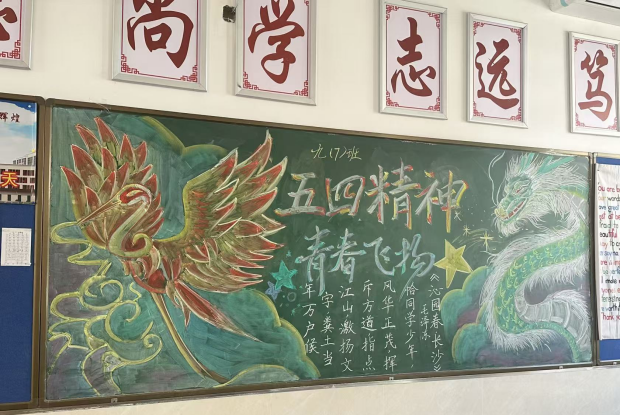 尚
学
志
远
笃
辉煌
天
九(7)班
五四精神
青春飞扬
《沁园春·长沙》
毛泽东
恰同学少年,
风华正茂,挥
斥方遒指点
江山,激扬文
字粪土当
年万户侯